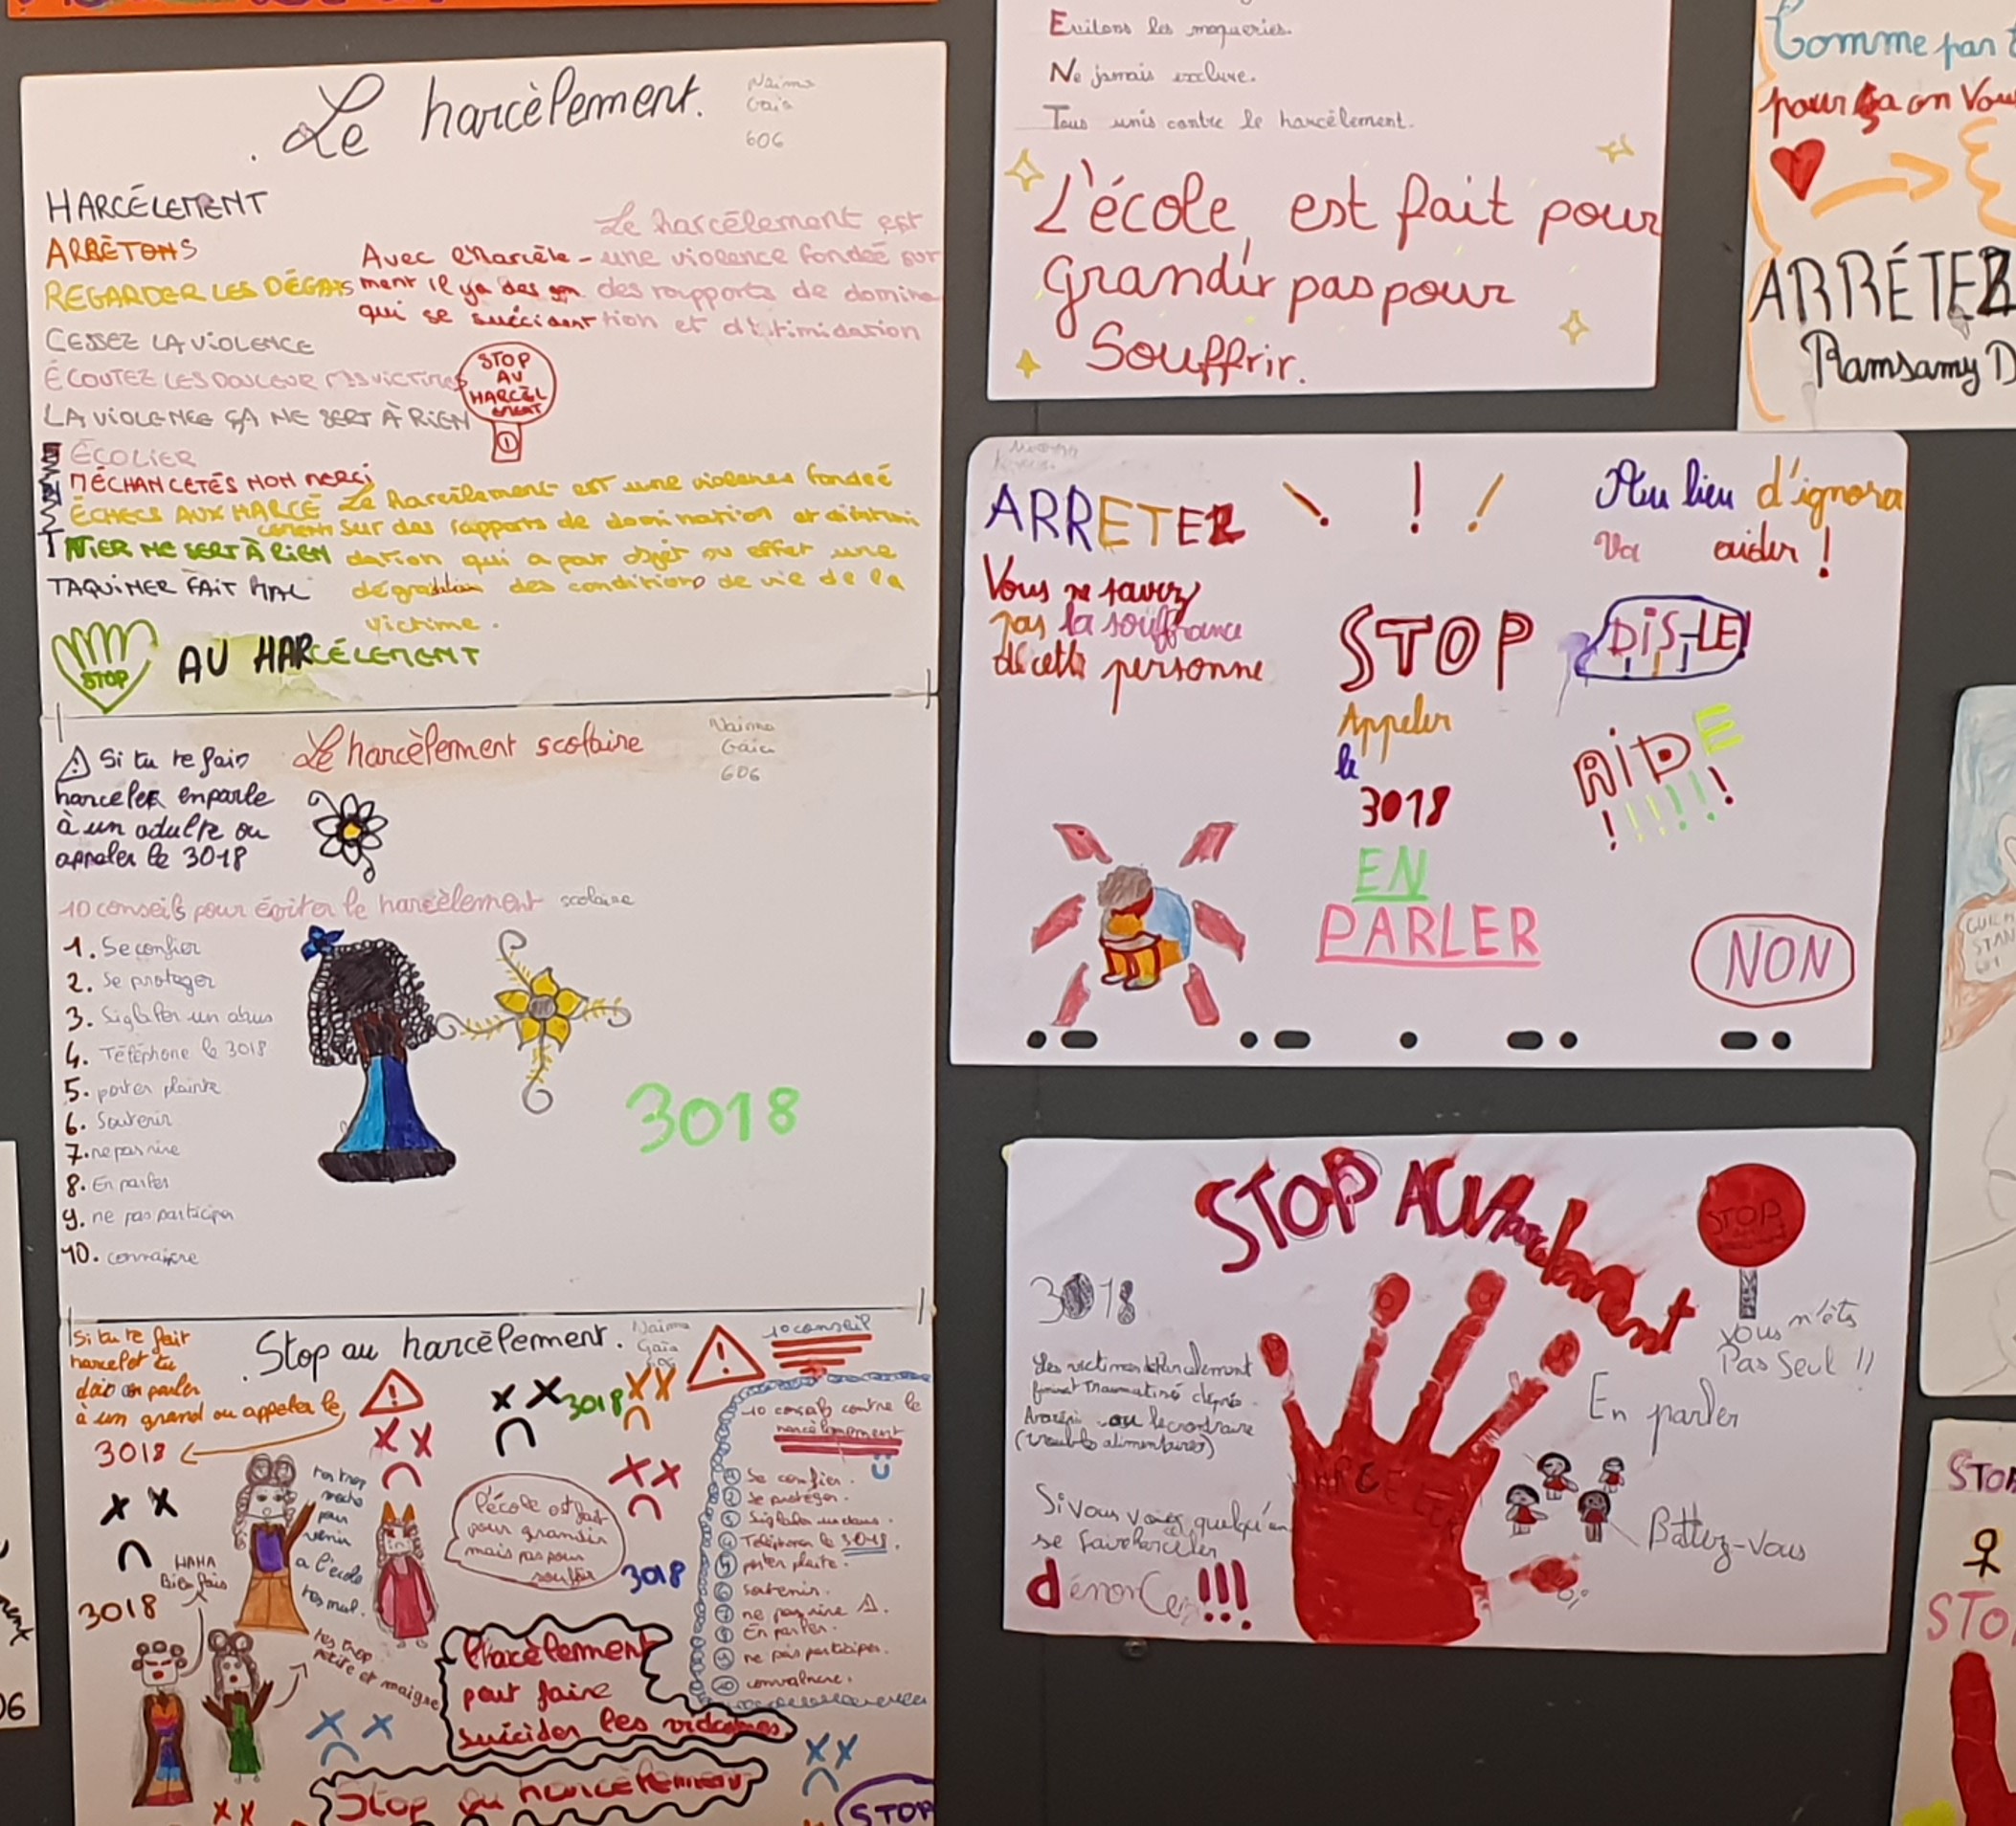 Le harcèlement.
Naima
Gaia
606
HARCÉLEMENT
ARRÊTONS
REGARDER LES DÉGATS
CESSEZ LA ViOLENCE
ÉCOUTEZ LES DOULEUR DES VICTIMES
LA ViOLENCE ÇA NE SERT À RiEN
ÉCOLIER
MÉCHANCETÉS NON MERCi
ÉCHECS AUX HARCÉ
LEMENT
NIER NE SERT À RIEN
TAQUINER FAIT MAL
Avec l'harcèle-
ment il ya des
qui se suicident
Le harcélement est
une violence fondée sur
des rapports de domina
tion et d'intimidation
STOP
AU
HARCÉL
EMENT
Le harcèlement est une violence fondée
sur des rapports de domination et d'intimi
dation qui a pour objet ou effet une
dégradation des conditions de vie de la
victime.
STOP
AU HARCÉLEMENT
Le harcèlement scolaire
Naima
Gaia
606
Si tu te fais
harceler enparle
à un adulte ou
appeler le 3018
10 conseils pour éviter le harcèlement scolaire
1. Se confier
2. Se protéger
3. Siglaler un abus
4. Téléphone le 3018
5. porter plainte
6. Soutenir
7. ne pas rire
8. En parler
9. ne pas participer
10. connaitre
3018
Si tu te fait
harceler tu
dois en parler
à un grand ou appeler le
3018
Stop au harcèlement.
Naima
Gaïa
606
10 conseil
3018
10 conseils contre le
harcèlement
1 Se confier.
2 Se protéger.
3 Siglaler un abus.
4 Téléphoner le 3018.
5 porter plainte.
6 soutenir.
7 ne pas rire
8 En parler.
9 ne pas participer.
10 convaincre.
t'es trop
moche
pour
venir
a l'école
t'es mal.
l'école est fait
pour grandir
mais pas pour
souffrir
3018
HAHA
Bien fais
3018
t'es trop
petite et maigre
L'harcèlement
peut faire
suicider les victimes
Stop au harcèlement
STOP
Evitons les moqueries.
Ne jamais exclure.
Tous unis contre le harcèlement.
L'école est fait pour
grandir pas pour
Souffrir.
Comme pan
pour ça on Vou
ARRÉTEZ
Ramsamy D
ARRETEZ ! ! !
Vous ne savez
pas la souffrance
de cette personne
Au lieu d'ignorer
Va aider !
STOP
Appeler
le
3018
EN
PARLER
DiS-LE!
AiDE
!!!!!!
NON
STOP AU Harcelement
STOP
3018
Vous n'êts
Pas Seul !!
En parler
Battez-vous
Si vous voyez quelqu'un
se faire harceler
dénoncer!!!
STO
06